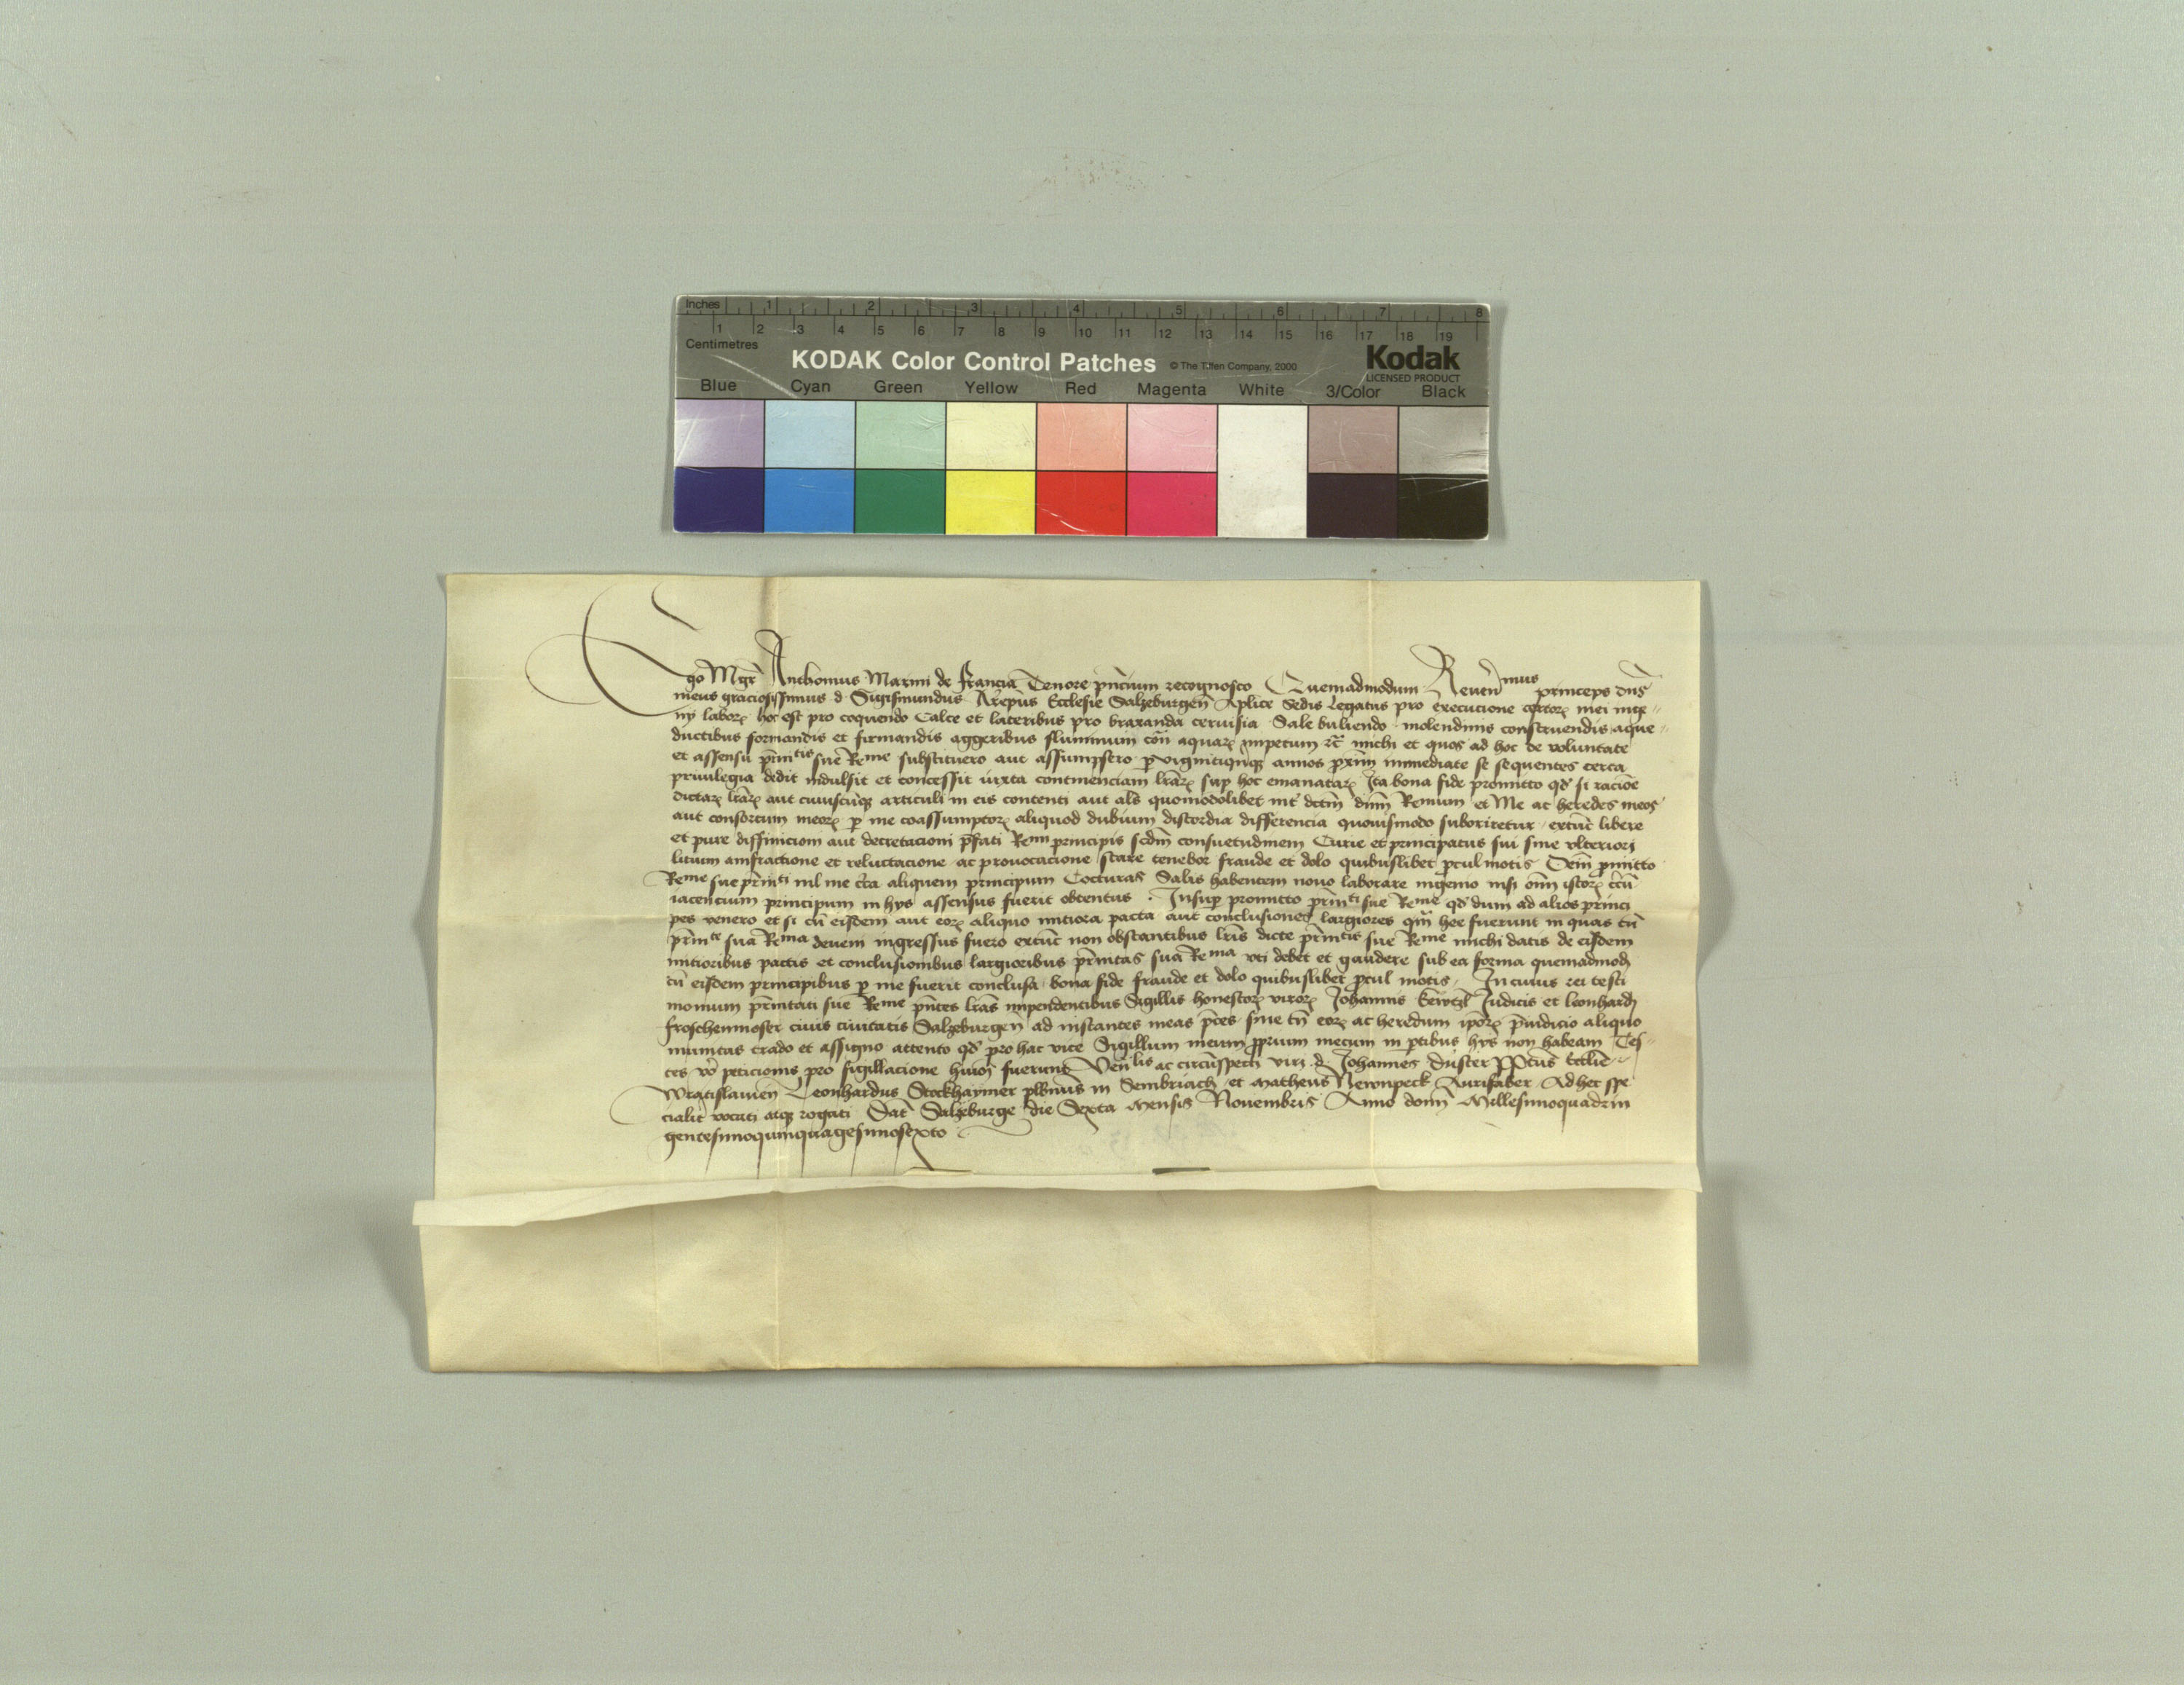 Inches 1 2 3 4 5 6 7 8
1 2 3 4 5 6 7 8 9 10 11 12 13 14 15 16 17 18 19
Centimetres
KODAK Color Control Patches © The Tiffen Company, 2000 Kodak
LICENSED PRODUCT
Blue Cyan Green Yellow Red Magenta White 3/Color Black
Ego Mgr̄ Anthonius Marini de francia Tenore pn̄cium recognosco Quemadmodum Reuerenmus princeps dn̄s
meus graciosissimus d. Sigismundus Arep̄us Ecclesie Salzeburgen̄ Aplice Sedis Legatus pro execucione certoꝝ mei inge-
nij laboꝝ hoc est pro coquendo Calce et lateribus pro braxanda ceruisia Sale buliendo molendinis construendis aque-
ductibus formandis et firmandis aggeribus fluminum cōn̄ aquaꝝ impetum ꝛc̄ michi et quos ad hoc de voluntate
et assensu pr̄inctis sue Reme substituero aut assumpsero ꝑ vigintiqnqꝫ annos ꝓxim immediate se sequentes certa
priuilegia dedit indulsit et concessit iuxta continenciam lr̄aꝝ suꝑ hoc emanataꝝ Ita bona fide promitto qd̄ si racioē
dictaꝝ lr̄aꝝ aut cuiuscūqꝫ articuli in eis contenti aut als̄ quomodolibet int̄ dctm̄ dnm̄ Remum et Me ac heredes meos
aut consortum meoꝝ ꝑ me coassumptoꝝ aliquod dubium discordia differencia quouismodo suboriretur extūc libere
et pure diffinicioni aut decretacioni p̄fati Remi principis scdm̄ consuetudinem Curie et principatus sui sine vlteriori
litium amfractione et reluctacione ac prouocacione stare tenebor fraude et dolo quibuslibet ꝓcul motis Item ꝓmitto
Reme sue pr̄incti nil me cir̄ta aliquem principum Cocturas Salis habentem nouo laborare ingenio nisi om̄ istoꝝ cir̄cū
iacencium principum in hijs assensus fuerit obtentus. Insuꝑ promitto pr̄incti sue Reme qd̄ dum ad alios princi
pes venero et si cū eisdem aut eoꝝ aliquo mitiora pacta aut conclusiones largiores qm̄ hee fuerunt in quas cū
pr̄incte sua Rema deueni ingressus fuero extūc non obstantibus lr̄is dicte pr̄inctis sue Reme michi datis de eisdem
mitioribus pactis et conclusionibus largioribus pr̄initas sua Rema vti debet et gaudere sub ea forma quemadmod̄
cū eisdem principibus ꝑ me fuerit conclusa bona fide fraude et dolo quibuslibet ꝓcul motis. In cuius rei testi
monium pr̄initati sue Reme pn̄tes lr̄as impendentibus Sigillis honestoꝝ viroꝝ Johannis Judicis et Leonhardi
froschenmoser ciuis ciuitatis Salzeburgen̄ ad instantes meas p̄ces sine tn̄ eoꝝ ac heredum ip̄oꝝ p̄iudicio aliquo
munitas trado et assigno attento qd̄ pro hac vice Sigillum meum ꝓprium mecum in ꝑtibus hijs non habeam Tes-
tes vō peticionis pro sigillacione huiꝰ fuerunt Venlis ac circūspecti viri d. Johannes Duster Eccliē
Wratislauien̄ Leonhardus Stockhaymer plbnus in Sembriach et Matheus Newnpeck Aurifaber Ad hec spe
cialit̄ vocati atqꝫ rogati Dat̄ Salzeburge die Sexta Mensis Nouembris Anno domi Millesimoquadrin
gentesimoquinquagesimosexto